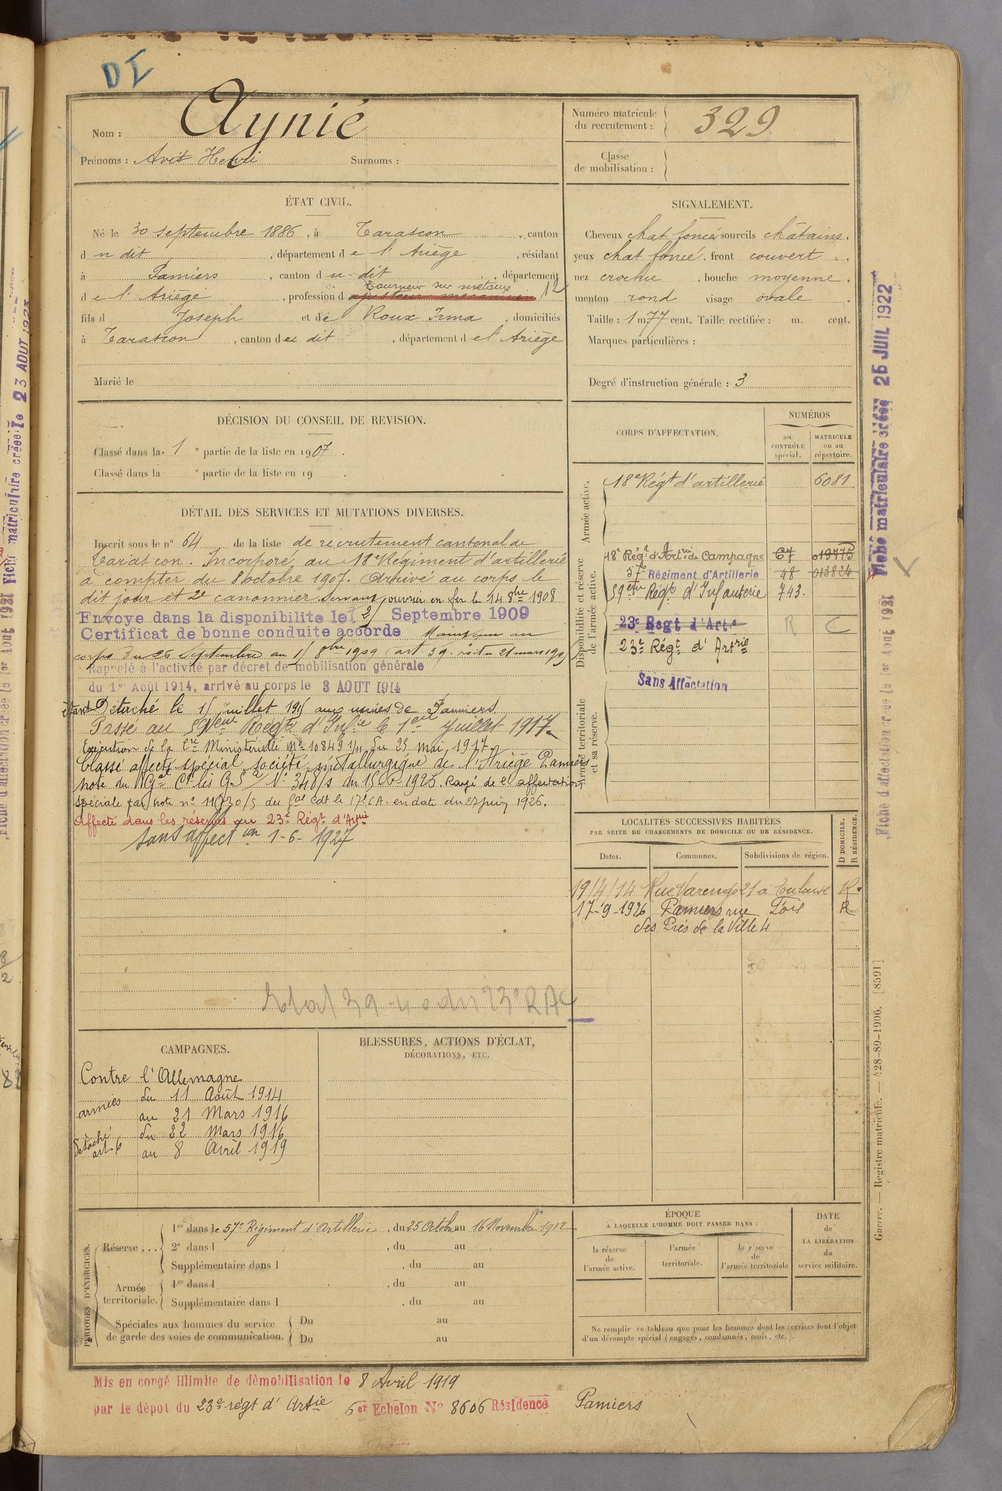 DI
Nom : Aynié
Prénoms : Avit Henri Surnoms :
Numéro matricule du recrutement : 329
Classe de mobilisation :
ÉTAT CIVIL.
Né le 30 septembre 1886, à Tarascon, canton
d u dit, département de l'Ariège, résidant
à Pamiers, canton du dit, département
de l'Ariège, profession d ajusteur mécanicien Tourneur sur métaux 12
fils de Joseph et de Roux Irma, domiciliés
à Tarascon, canton du dit, département de l'Ariège
Marié le
SIGNALEMENT.
Cheveux chat foncé sourcils châtains.
yeux chat foncé. front couvert.
nez crochu, bouche moyenne.
menton rond visage ovale.
Taille : 1 m 77 cent. Taille rectifiée : m. cent.
Marques particulières :
Degré d'instruction générale : 3
DÉCISION DU CONSEIL DE REVISION.
Classé dans la 1 e partie de la liste en 1907.
Classé dans la e partie de la liste en 19 .
DÉTAIL DES SERVICES ET MUTATIONS DIVERSES.
Inscrit sous le n° 64 de la liste de recrutement cantonal de
Tarascon. Incorporé au 18e Régiment d'artillerie
à compter du 8 octobre 1907. Arrivé au corps le
dit jour et 2e canonnier servant, ouvrier en fer le 14 8bre 1908
Envoyé dans la disponibilité le 25 Septembre 1909
Certificat de bonne conduite accordé Maintenu au
corps du 26 septembre au 1er 8bre 1909 (art 39. loi du 21 mars 1905)
Rappelé à l'activité par décret de mobilisation générale
du 1er Août 1914, arrivé au corps le 3 AOUT 1914
Détaché le 15 juillet 1915 aux usines de Pamiers.
Passé au 59eme Régt d'Infie le 1er Juillet 1917
Exécution de la Cre Ministérielle N° 10849 du 31 mai 1917
Classé affecté spécial Société métallurgique de l'Ariège Pamiers
note du Gal Ct les G. N° 348/s du 1926. Rayé de l'affectation
spéciale par note n° 11730/5 du Gal Cdt le 17e CA. en date du 27 juin 1926.
Affecté dans les réserves au 23e Régt d'Artie
Sans affection 1-6-1927
CORPS D'AFFECTATION.
NUMÉROS
au contrôle spécial.
MATRICULE ou au répertoire.
Armée active.
18e Régt d'artillerie 6081
Disponibilité et réserve de l'armée active.
18e Régt d'Artie de Campagne 67 019775
57e Régiment d'Artillerie 48 013834
59eme Régt d'Infanterie 743
23e Régt d'Arte R C
23e Régt d'Artie
Sans Affectation
Armée territoriale et sa réserve.
LOCALITÉS SUCCESSIVES HABITÉES
PAR SUITE DE CHANGEMENTS DE DOMICILE OU DE RÉSIDENCE.
Dates. Communes. Subdivisions de région. D DOMICILE. R RÉSIDENCE.
19/4/14 Rue Varenge 21 à Toulouse R.
17-9-1926 Pamiers rue Foix R
des Prés de la Ville 4
CAMPAGNES.
Contre l'Allemagne
armées du 11 Août 1914
au 21 Mars 1916
Détaché art. 6 du 22 Mars 1916
au 8 Avril 1919
BLESSURES, ACTIONS D'ÉCLAT,
DÉCORATIONS, ETC.
PÉRIODES D'EXERCICES.
Réserve... 1re dans le 57e Régiment d'Artillerie, du 25 Octobre au 16 Novembre 1912
2e dans l , du au
Supplémentaire dans l , du au
Armée territoriale. 1re dans l , du au
Supplémentaire dans l , du au
Spéciales aux hommes du service de garde des voies de communication. Du au
Du au
ÉPOQUE
À LAQUELLE L'HOMME DOIT PASSER DANS :
la réserve de l'armée active.
l'armée territoriale.
la réserve de l'armée territoriale
DATE de LA LIBÉRATION du service militaire.
Ne remplir ce tableau que pour les hommes dont les services font l'objet
d'un décompte spécial (engagés, condamnés, omis, etc.).
Mis en congé illimité de démobilisation le 8 Avril 1919
par le dépôt du 23e régt d'Artie 6er Echelon N° 8606 Résidence Pamiers
Fiche matriculaire créée 25 JUIL 1922
Fiche d'affectation créée le 1er Août 1921
Guerre. — Registre matricule. — 428-89-1906. [8591]
Fiche matriculaire créée le 23 AOUT 1923